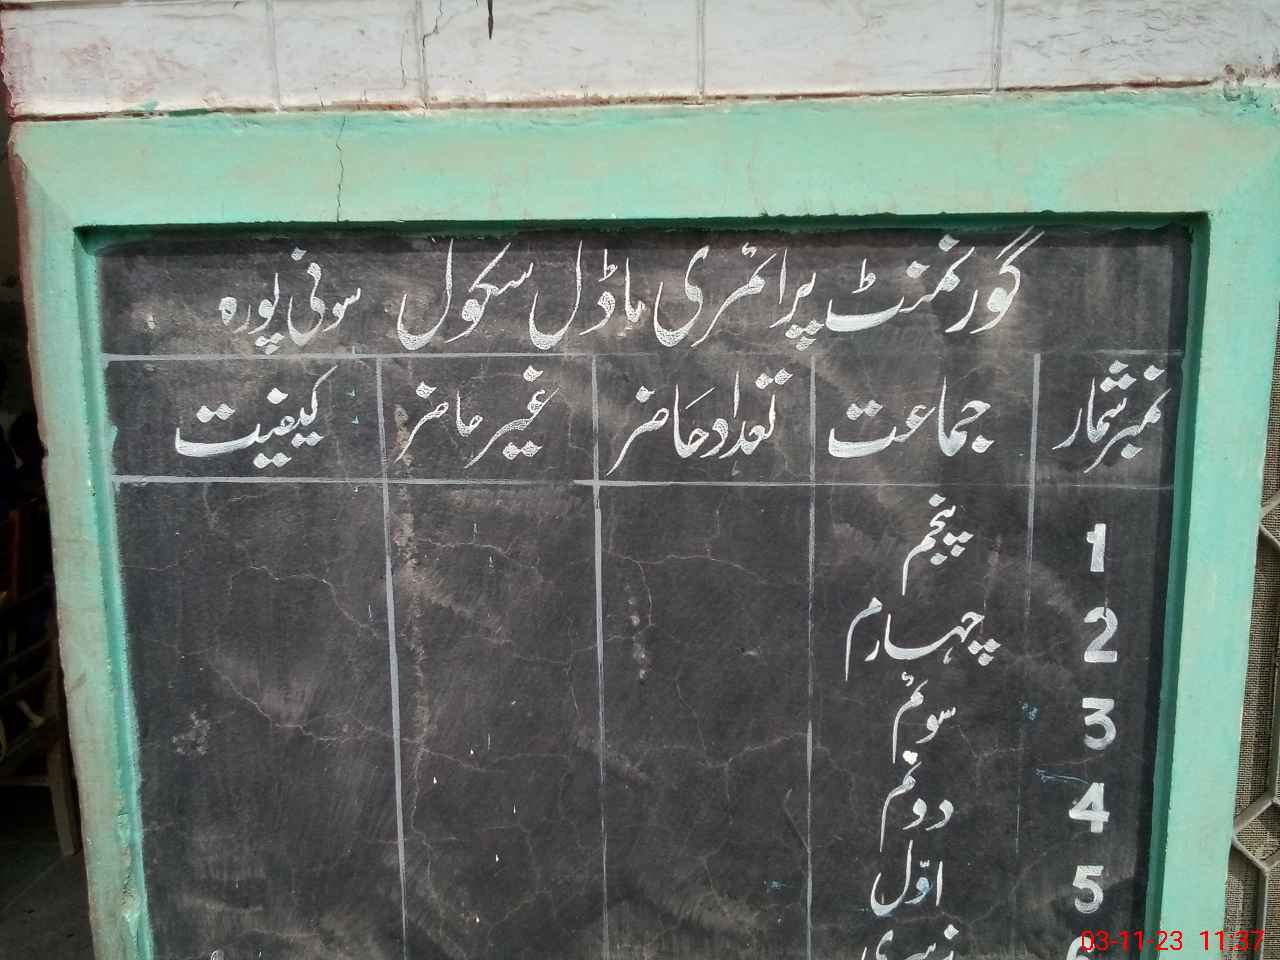 گورنمنٹ پرائمری ماڈل سکول سونی پورہ
نمبر شمار جماعت تعداد حاضر غیر حاضر کیفیت
1 پنجم
2 چہارم
3 سوئم
4 دوئم
5 اوّل
6 نرسری
03-11-23 11:37